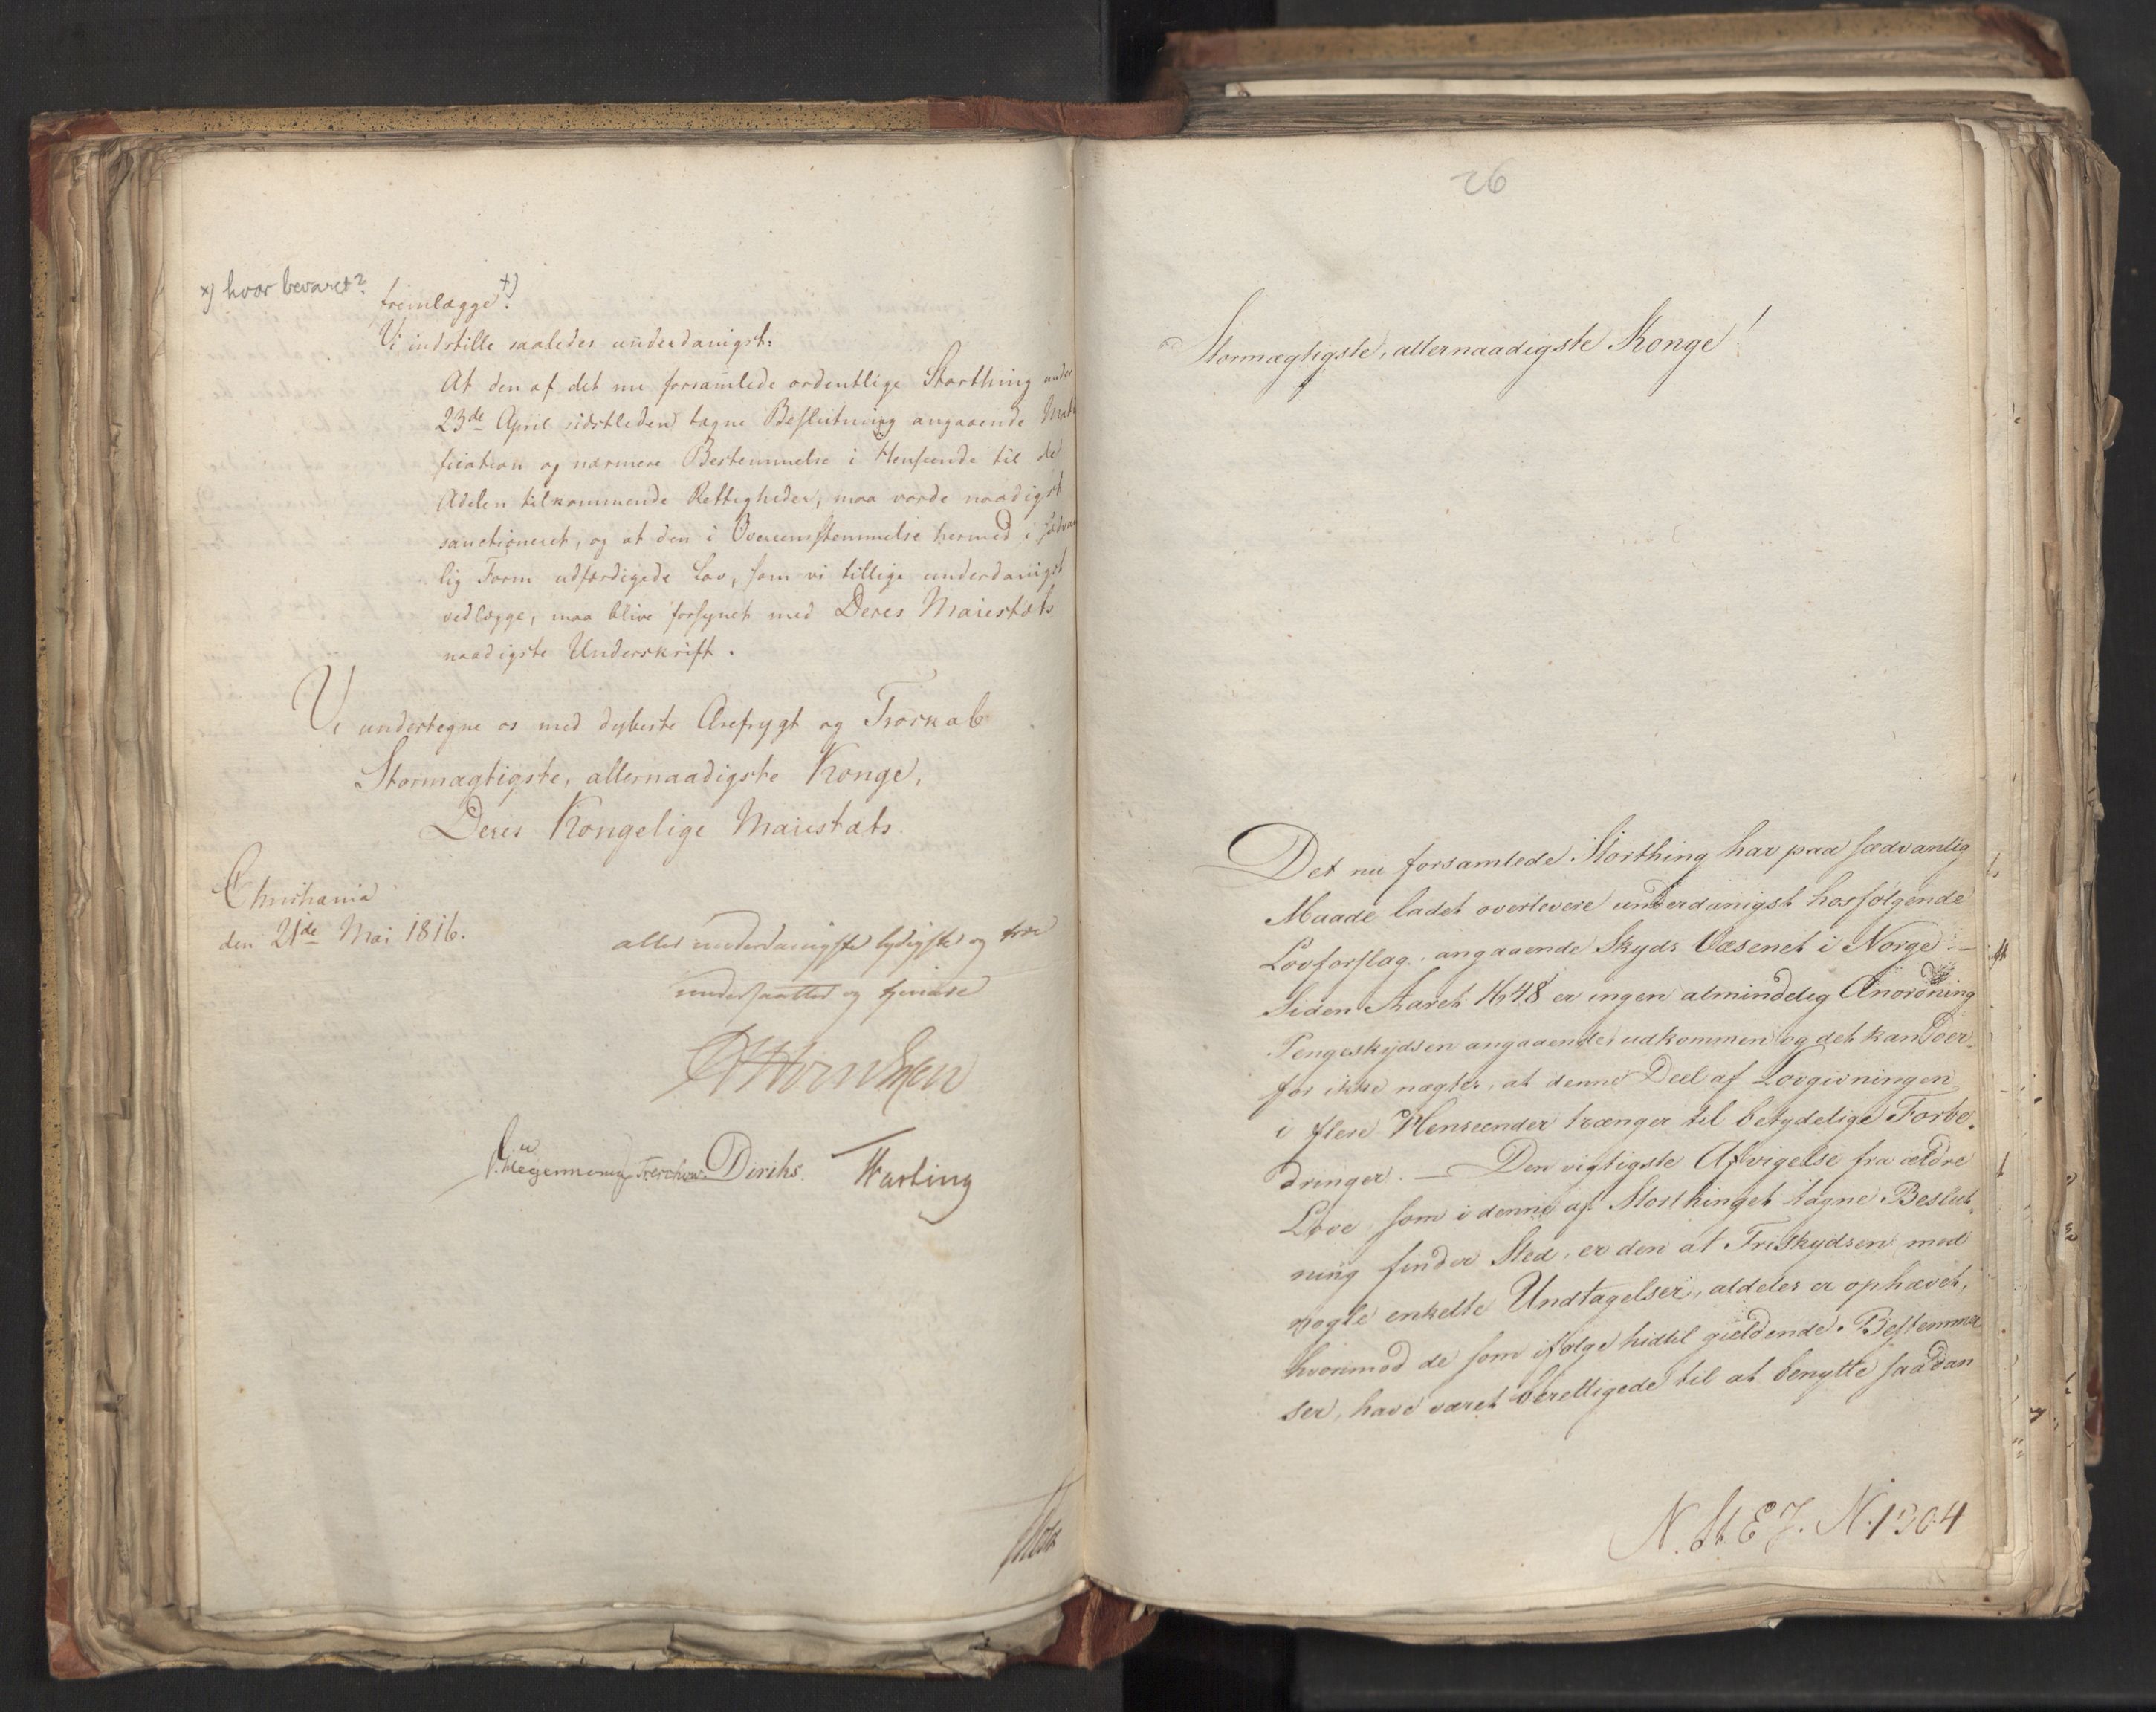 x) hvor bevaret?
fremlægge x).
Vi indstille saaledes underdanigst:
At den af det nu forsamlede ordentlige Storthing under
23de April sidstleden tagne Beslutning angaaende
fication og nærmere Bestemmelse i Henseende til de
Adelen tilkommende Rettigheder, maa vorde naadigst
sanctioneret, og at den i Overeensstemmelse hermed i sædvan
lig Form udfærdigede Lov, som vi tillige underdanigst
vedlægge, maa blive forsynet med Deres Maiestæts
naadigste Underskrift.
Vi undertegne os med dybeste Ærefrygt og Troskab
Stormægtigste, allernaadigste Konge,
Deres Kongelige Maiestæts
Christiania
den 21de Mai 1816.
allerunderdanigste lydigste og troe
undersaatter og tjenere
Treschow. Diriks. Harting
26
Stormægtigste, allernaadigste Konge!
Det nu forsamlede Storthing har paa sædvanlig
Maade ladet overlevere underdanigst hosfølgende
Lovforslag angaaende Skyds Væsenet i Norge –
Siden Aaret 1648 er ingen almindelig Anordning
Pengeskydsen angaaende udkommen og det kan der-
for ikke nægtes, at denne Deel af Lovgivningen
i flere Henseender trænger til betydelige Forbe-
dringer. – Den vigtigste Afvigelse fra ældre
Love, som i denne af Storthinget tagne Beslut-
ning finder Sted, er den at Friskydsen med
nogle enkelte Undtagelser, aldeles er ophævet,
hvorimod de som ifølge hidtil gieldende Bestemmel
ser, have været berettigede til at benytte saadan
N. St. E. J. N. 1304